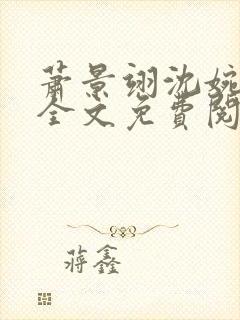 萧景翊沈婉
全文免費閱
蒋鑫